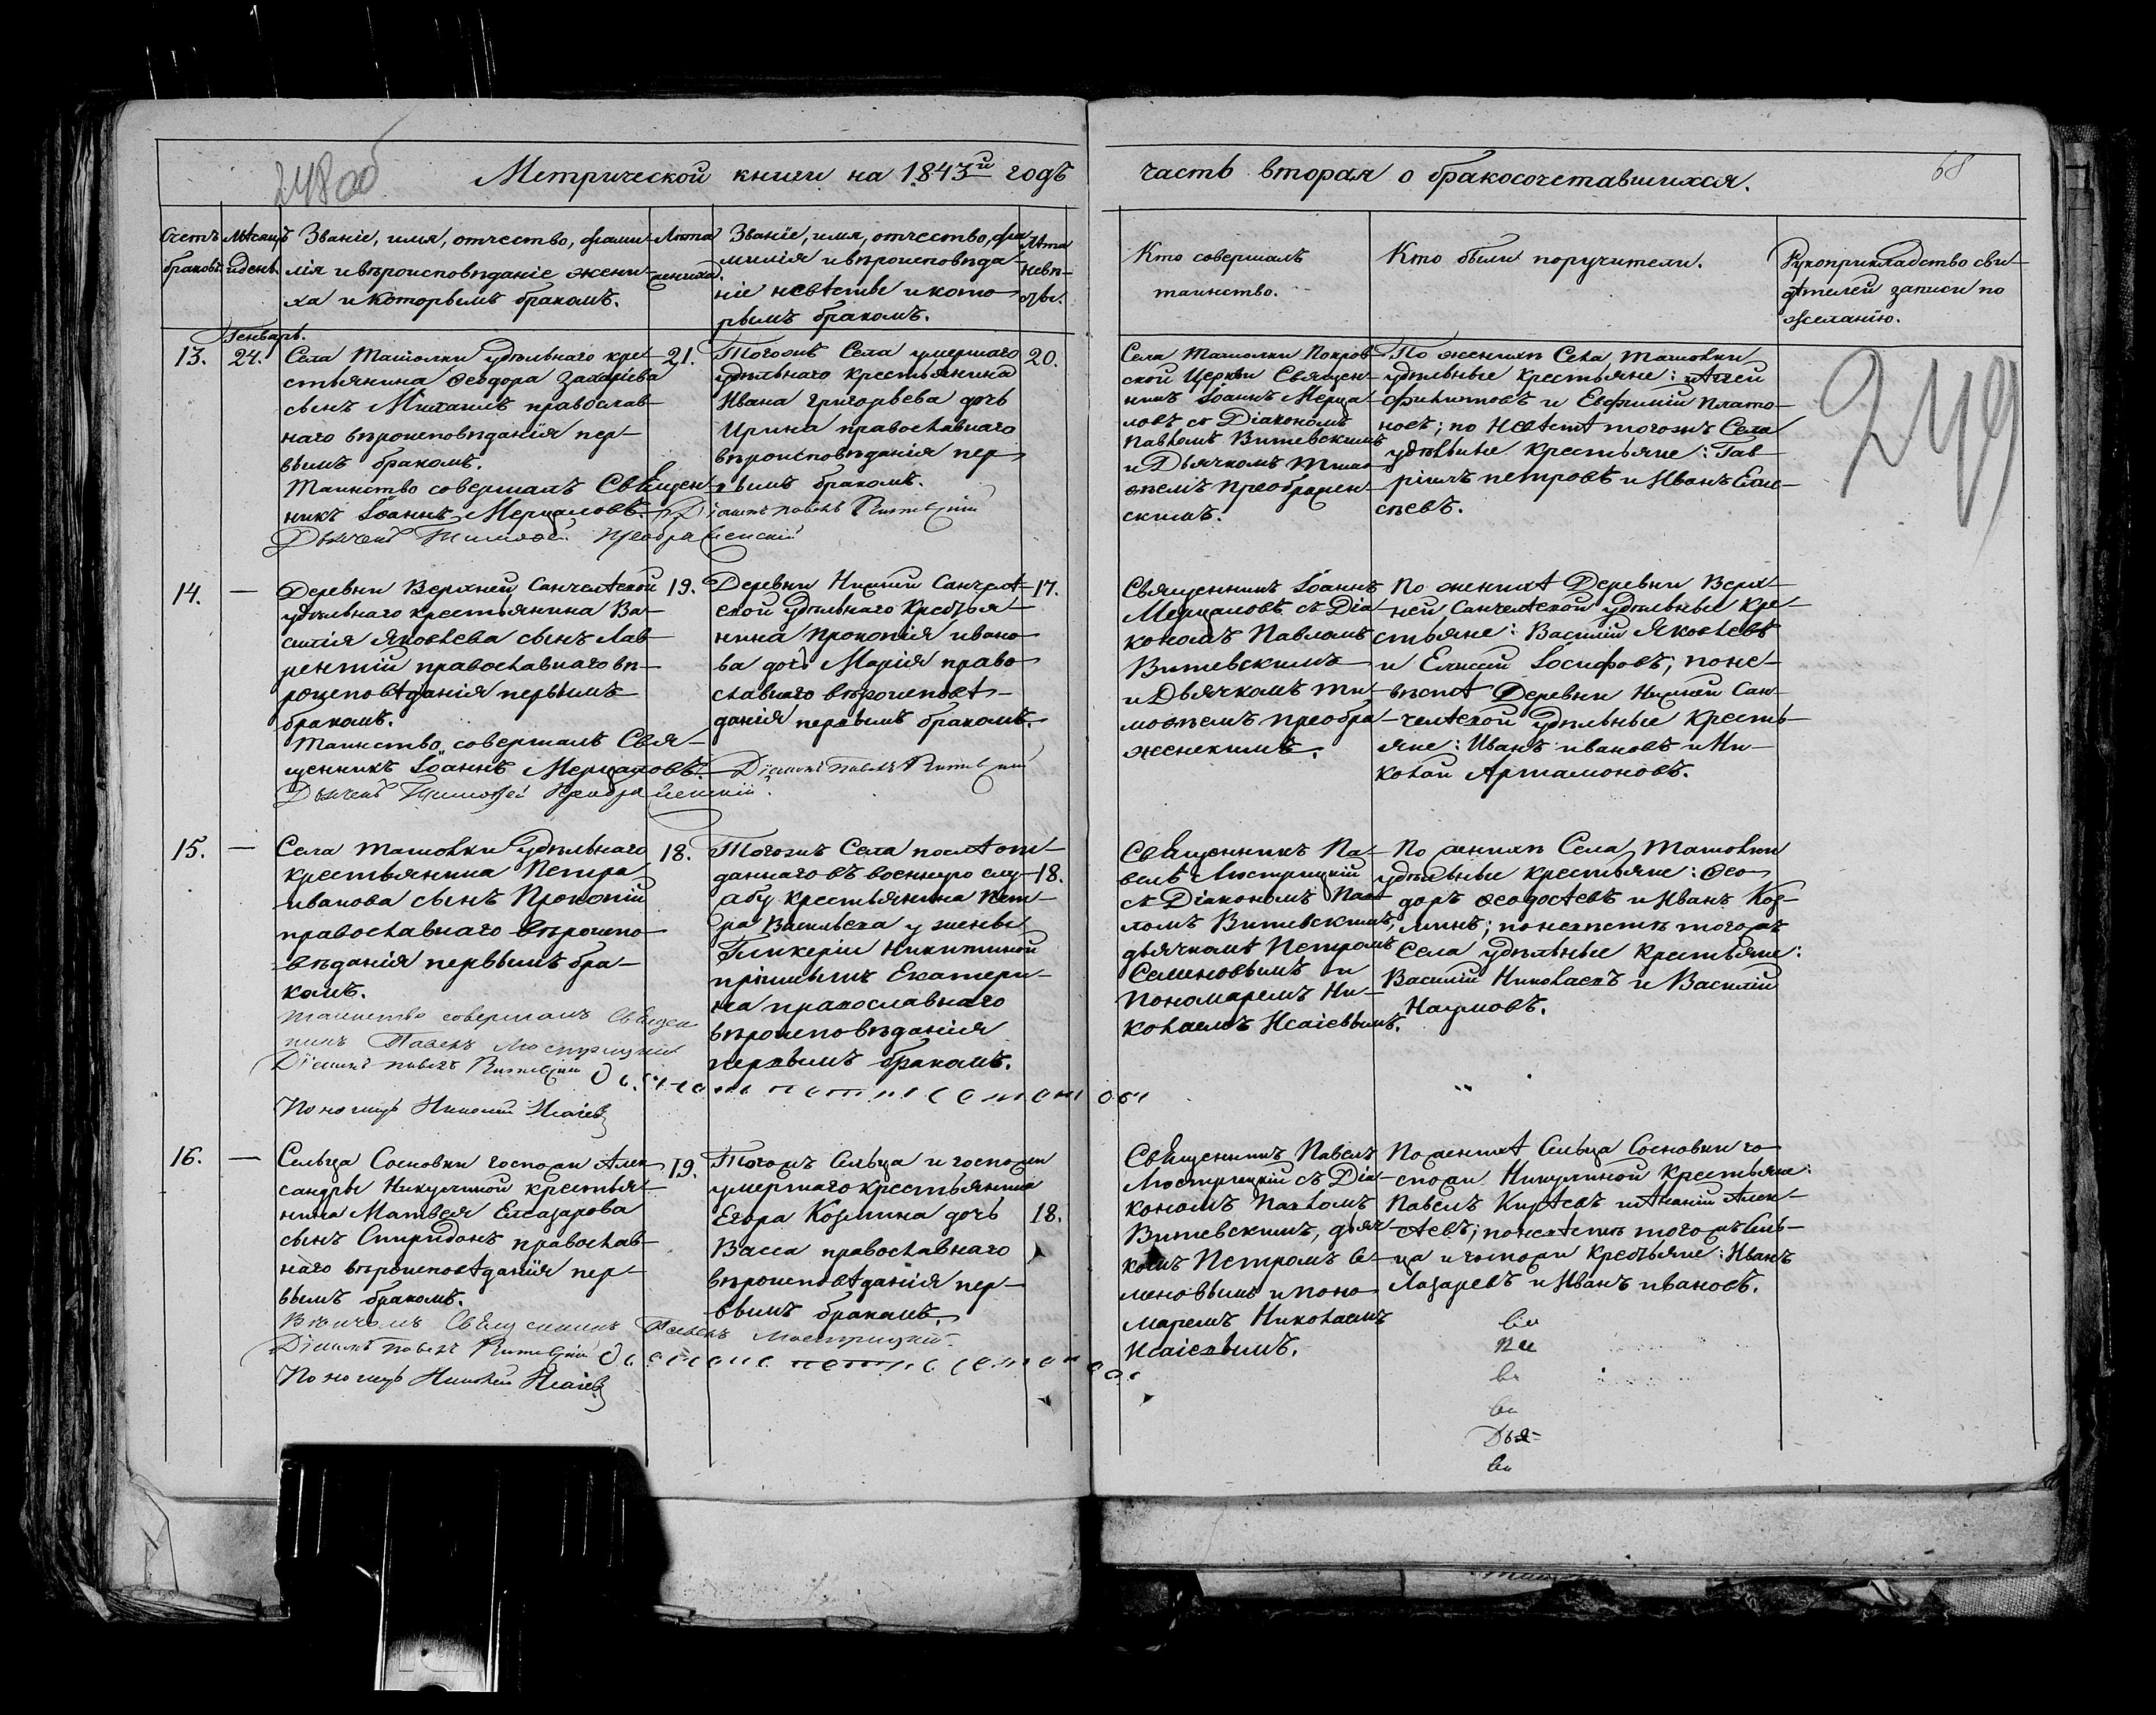 248 об
Метрической книги на 1843й годъ
часть вторая о бракосочетавшихся.
68
Счетъ браковъ.
Мѣсяцъ и день.
Званіе, имя, отчество, фами-
лія и вѣроисповѣданіе жени-
ха и которымъ бракомъ.
Лѣта
жениха.
Званіе, имя, отчество, фа-
милія и вѣроисповѣда-
ніе невѣсты и кото-
рымъ бракомъ.
Лѣта
невѣ-
сты.
Кто совершалъ
таинство.
Кто были поручители.
Рукоприкладство сви-
дѣтелей записи по
желанію.
249
Генварь.
13.
24.
Села Ташолки удѣльнаго кре-
стьянина Ѳеодора Захаріева
сынъ Михаилъ православ-
наго вѣроисповѣданія пер-
вымъ бракомъ.
Таинство совершалъ Священ-
никъ Іоаннъ Мерцаловъ.
Діаконъ Павелъ Витевскій
Дьячекъ Тимоѳей Преображенскій
21.
Тогожъ Села умершаго
удѣльнаго крестьянина
Ивана Григорьева дочь
Ирина православнаго
вѣроисповѣданія пер-
вымъ бракомъ.
20.
Села Ташолки Покров-
ской Церкви Священ-
никъ Іоаннъ Мерца-
ловъ съ Діакономъ
Павломъ Витевскимъ
и Дьячкомъ Тимо-
ѳеемъ Преображен-
скимъ.
По женихѣ Села Ташовки
удѣльные крестьяне:
Филиповъ и Евфимій Плато-
новъ; по невѣстѣ тогожъ Села
удѣльные крестьяне: Гав-
ріилъ Петровъ и Иванъ Ели-
сѣевъ.
14.
—
Деревни Верхней Санчелѣевой
удѣльнаго крестьянина Ва-
силія Яковлева сынъ Лав-
рентій православнаго вѣ-
роисповѣданія первымъ
бракомъ.
Таинство совершалъ Свя-
щенникъ Іоаннъ Мерцаловъ.
Діаконъ Павелъ Витевскій
Дьячекъ Тимоѳей Преображенскій.
19.
Деревни Нижней Санчелѣ-
евой удѣльнаго крестья-
нина Прокопія Ивано-
ва дочь Марія право-
славнаго вѣроисповѣ-
данія первымъ бракомъ.
17.
Священникъ Іоаннъ
Мерцаловъ съ Діа-
кономъ Павломъ
Витевскимъ
и Дьячкомъ Ти-
моѳеемъ Преобра-
женскимъ.
По женихѣ Деревни Верх-
ней Санчелѣевой удѣльные кре-
стьяне: Василій Яковлевъ
и Елисей Іосифовъ; по не-
вѣстѣ Деревни Нижней Сан-
челѣевой удѣльные кресть-
яне: Иванъ Ивановъ и Ни-
колай Артамоновъ.
15.
—
Села Ташовки удѣльнаго
крестьянина Петра
Иванова сынъ Прокопій
православнаго вѣроиспо-
вѣданія первымъ бра-
комъ.
Таинство совершалъ Священ
никъ Павелъ Люстрицкій
Діаконъ Павелъ Витевскій
дьячокъ петръ семеновъ
Пономарь Николай Исаіевъ
18.
Тогожъ Села послѣ от-
даннаго въ военную слу-
жбу крестьянина Пет-
ра Васильева у жены
Гликеріи Никитиной
прижитая Екатери-
на православнаго
вѣроисповѣданія
первымъ бракомъ.
18.
Священникъ Па-
велъ Люстрицкій
съ Діакономъ Пав-
ломъ Витевскимъ,
дьячкомъ Петромъ
Семеновымъ и
Пономаремъ Ни-
колаемъ Исаіевымъ.
По женихѣ Села Ташовки
удѣльные крестьяне: Ѳео-
доръ Ѳеодосѣевъ и Иванъ Коз-
минъ; по невѣстѣ тогожъ
Села удѣльные крестьяне:
Василій Николаевъ и Василій
Наумовъ.
16.
—
Сельца Сосновки госпожи Алек-
сандры Никулиной крестья-
нина Матвея Елеазарова
сынъ Спиридонъ православ-
наго вѣроисповѣданія пер-
вымъ бракомъ.
Вѣнчалъ Священникъ Павелъ Люстрицкій.
Діаконъ Павелъ Витевскій
дьячокъ петръ семеновъ
Пономарь Николай Исаіевъ
19.
Тогожъ Сельца и госпожи
умершаго крестьянина
Егора Козмина дочь
Васса православнаго
вѣроисповѣданія пер-
вымъ бракомъ.
18.
Священникъ Павелъ
Люстрицкій съ Діа-
кономъ Павломъ
Витевскимъ, дьяч-
комъ Петромъ Се-
меновымъ и поно-
маремъ Николаемъ
Исаіевымъ.
По женихѣ Сельца Сосновки го-
спожи Никулиной крестьяне:
Павелъ Кирѣевъ и Ананій Алек-
сѣевъ; по невѣстѣ тогожъ Сель-
ца и госпожи крестьяне: Иванъ
Лазаревъ и Иванъ Ивановъ.